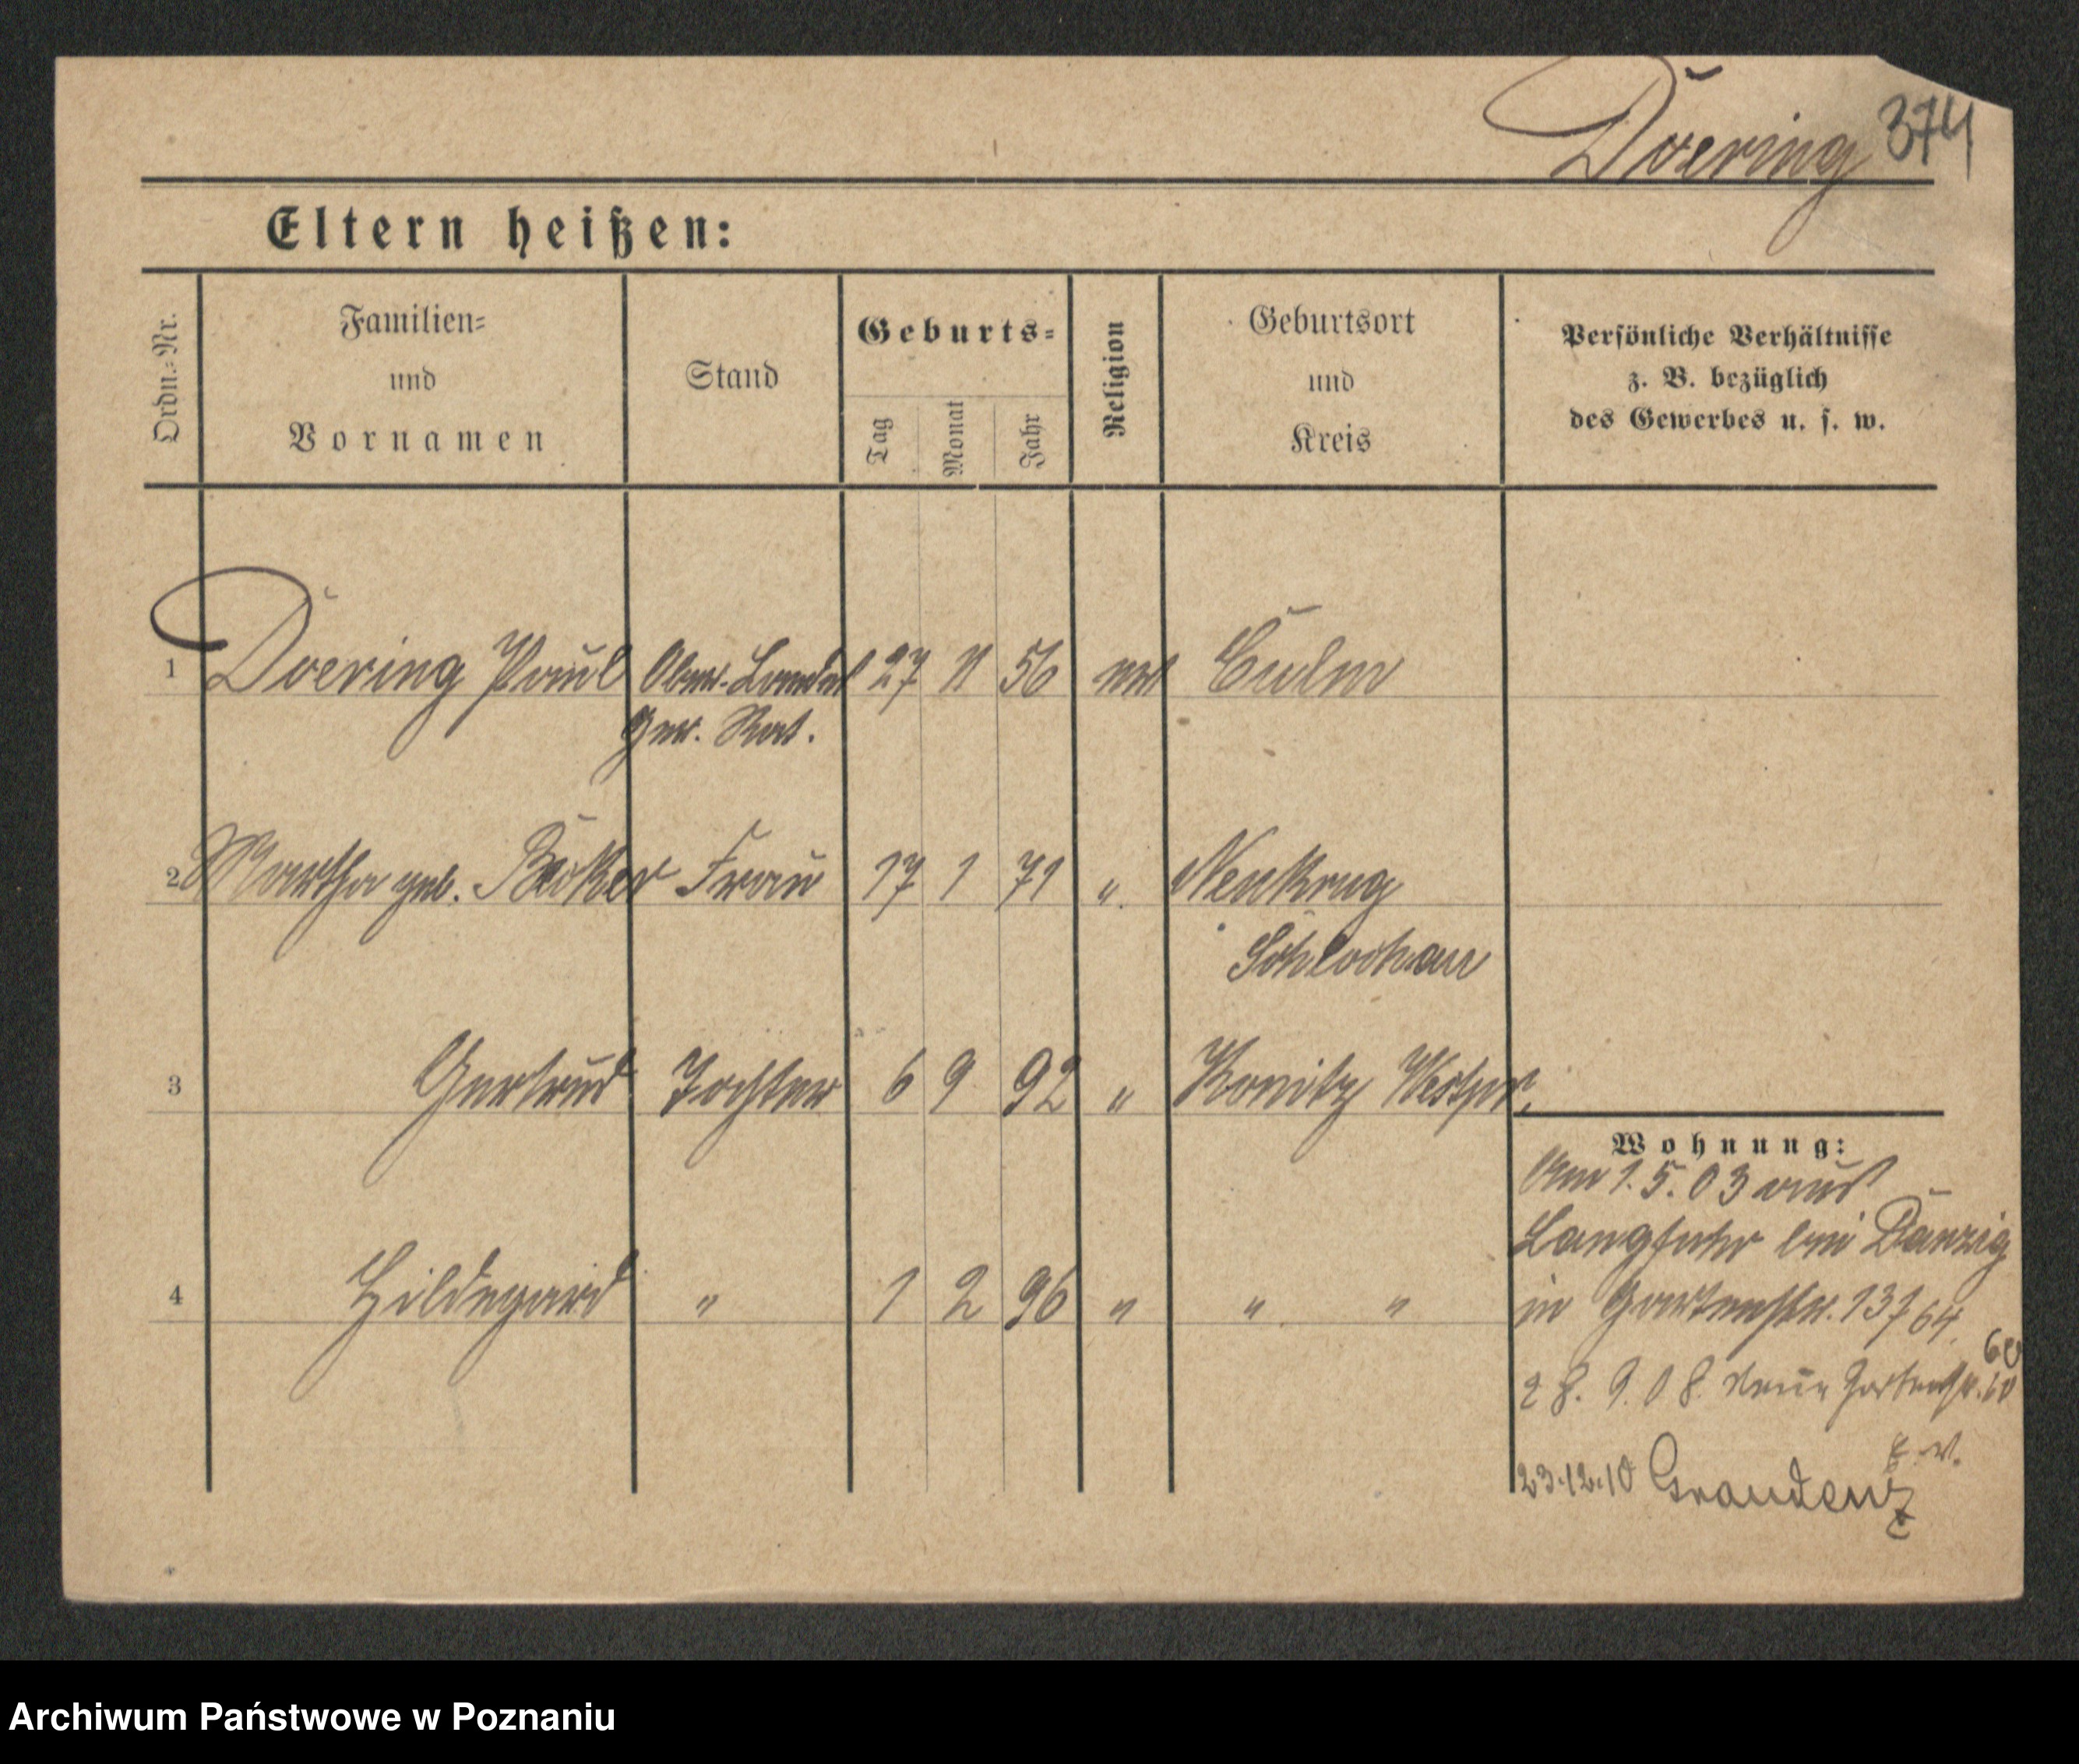 Doering 374
Eltern heißen:
Ordn.=Nr.
Familien=
und
Vornamen
Stand
Geburts=
Tag
Monat
Jahr
Religion
Geburtsort
und
Kreis
Persönliche Verhältnisse
z. B. bezüglich
des Gewerbes u. s. w.
1 Doering Paul Ober-Landes 27 11 56 ev Culm
Ger. Rat.
2 Martha geb. Frau 17 1 71 " Neukrug
Schlochau
3 Gertrud Tochter 6 9 92 " Konitz Westpr.
Wohnung:
Am 1.5.03 aus
Langfuhr bei Danzig
4 Hildegard " 1 2 96 " " "
in Gartenstr. 64
28.9.08. Gartenstr. 60
23.12.10 Graudenz
Archiwum Państwowe w Poznaniu